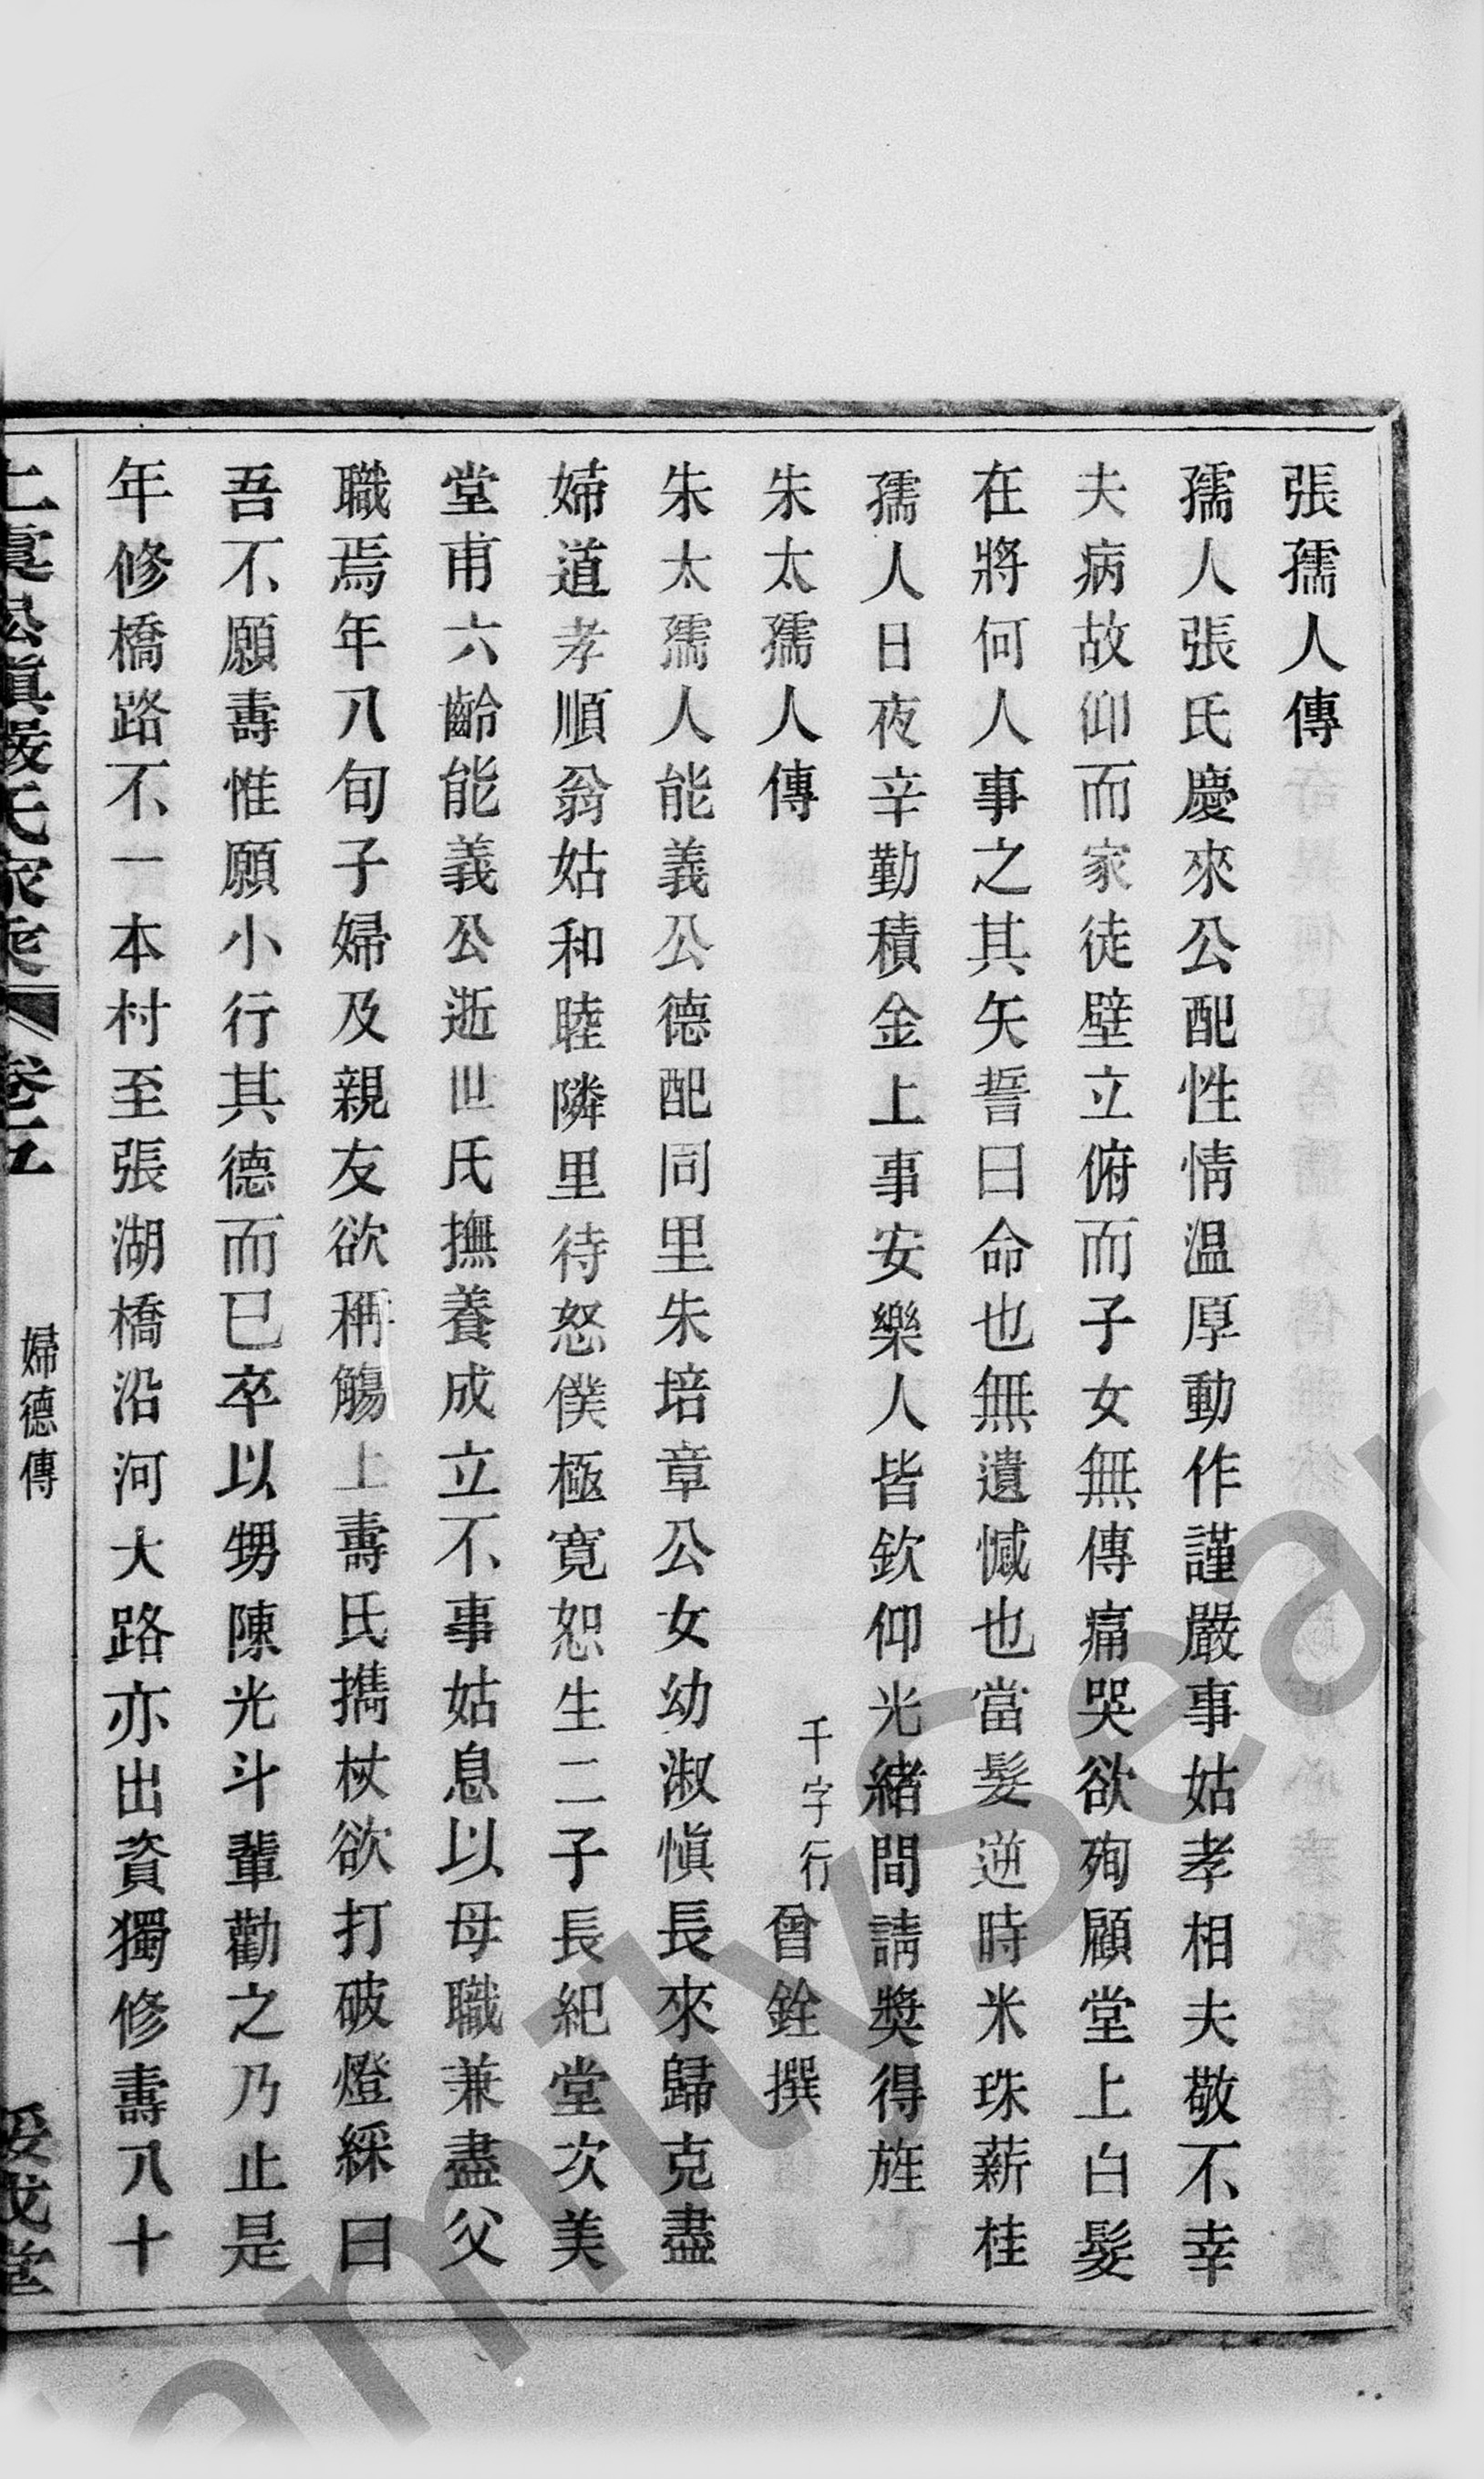 張孺人傳
孺人張氏慶來公配性情温厚動作謹嚴事姑孝相夫敬不幸
夫病故仰而家徒壁立俯而子女無傳痛哭欲殉顧堂上白髮
在將何人事之其矢誓曰命也無遺憾也當髮逆時米珠薪桂
孺人日夜辛勤積金上事安樂人皆欽仰光緒間請獎得旌
朱太孺人傳 千字行 曾銓撰
朱太孺人能義公德配同里朱培章公女幼淑慎長來歸克盡
婦道孝順翁姑和睦隣里待怒僕極寬恕生二子長紀堂次美
堂甫六齡能義公逝世氏撫養成立不事姑息以母職兼盡父
職焉年八旬子婦及親友欲稱觴上壽氏攜杖欲打破燈綵曰
吾不願壽惟願小行其德而已卒以甥陳光斗輩勸之乃止是
年修橋路不一本村至張湖橋沿河大路亦出資獨修壽八十
上虞松鎮嚴氏家乘 卷五 婦德傳